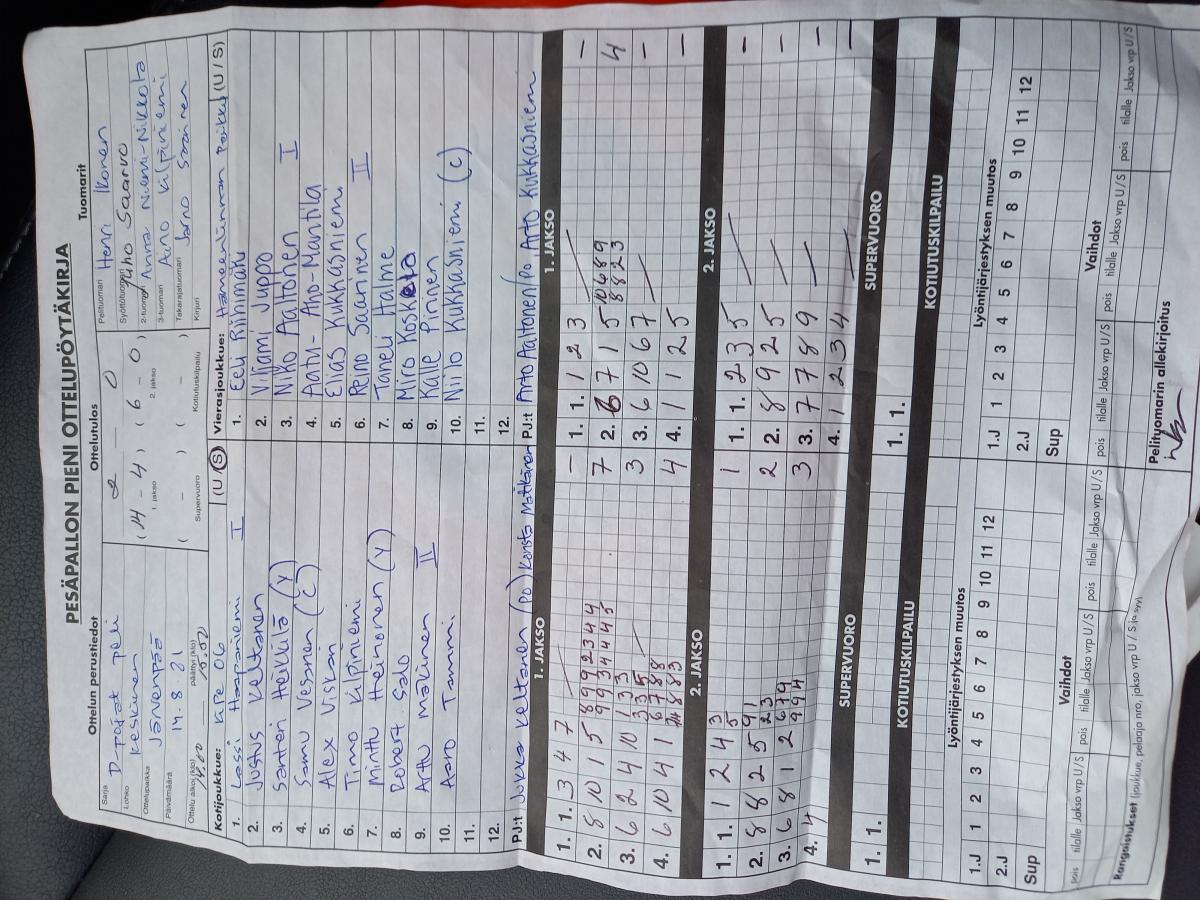 PESÄPALLON PIENI OTTELUPÖYTÄKIRJA
Ottelun perustiedot
Ottelutulos
Tuomarit
Sarja D-pojat peli
Lohko Keskinen
Ottelupaikka Järvenpää
Päivämäärä 14.8.21
Ottelu alkoi (klo)
päättyi (klo)
2 - 0
(14 - 4) (6 - 0)
1. jakso
2. jakso
( - ) ( - )
Supervuoro
Kotiutuskilpailu
Pelituomari Henri Ikonen
Syöttötuomari Juho Saarvo
2-tuomari Anna Niemi-Nikkola
3-tuomari Aarno Kilpiniemi
Takarajatuomari Jarno Saarinen
Kirjuri
Kotijoukkue: KPe 06 (U / S)
1. Lassi Haapaniemi I
2. Justus Keltanen
3. Santeri Heikkilä (Y)
4. Samu Vesanen (C)
5. Alex Viskari
6. Timo Kilpiniemi
7. Minttu Heinonen (Y)
8. Robert Salo
9. Arttu Mäkinen II
10. Aaro Tammi
11.
12.
PJ:t Jukka Keltanen (PO) Konsta Matikainen
Vierasjoukkue: Hämeenlinnan Poikia (U / S)
1. Eeli Riihimäki
2. Viljami Juppo
3. Niko Aaltonen I
4. Aatu- Aho-Mantila
5. Elias Kukkasniemi
6. Reino Saarinen II
7. Taneli Halme
8. Miro Koskela
9. Kalle Pirinen
10. Niilo Kukkasniemi (C)
11.
12.
PJ:t Arto Aaltonen/Po Arto Kukkasniemi
1. JAKSO
1. 1. 3 4 7 -
2. 8 10 1 5 7
3. 6 2 4 10 3
4. 6 10 4 1 4
2. JAKSO
1. 1. 1 2 4 1
2. 8 8 2 5 2
3. 6 8 1 2 3
4. 4
SUPERVUORO
1. 1.
KOTIUTUSKILPAILU
1. JAKSO
1. 1. 1 2 3 -
2. 6 7 1 5 10 6 8 9 4
8 8 2 3
3. 6 10 6 7 -
4. 1 1 2 5 -
2. JAKSO
1. 1. 2 3 5 -
2. 8 9 2 5 -
3. 7 7 8 9 -
4. 1 2 3 4 -
SUPERVUORO
1. 1.
KOTIUTUSKILPAILU
Lyöntijärjestyksen muutos
1.J 1 2 3 4 5 6 7 8 9 10 11 12
2.J
Sup
Vaihdot
pois tilalle Jakso vrp U / S pois tilalle Jakso vrp U / S pois tilalle Jakso vrp U / S
Lyöntijärjestyksen muutos
1.J 1 2 3 4 5 6 7 8 9 10 11 12
2.J
Sup
Vaihdot
pois tilalle Jakso vrp U / S pois tilalle Jakso vrp U / S pois tilalle Jakso vrp U / S
Rangaistukset (joukkue, pelaaja nro, jakso vrp U / S ja syy)
Pelituomarin allekirjoitus